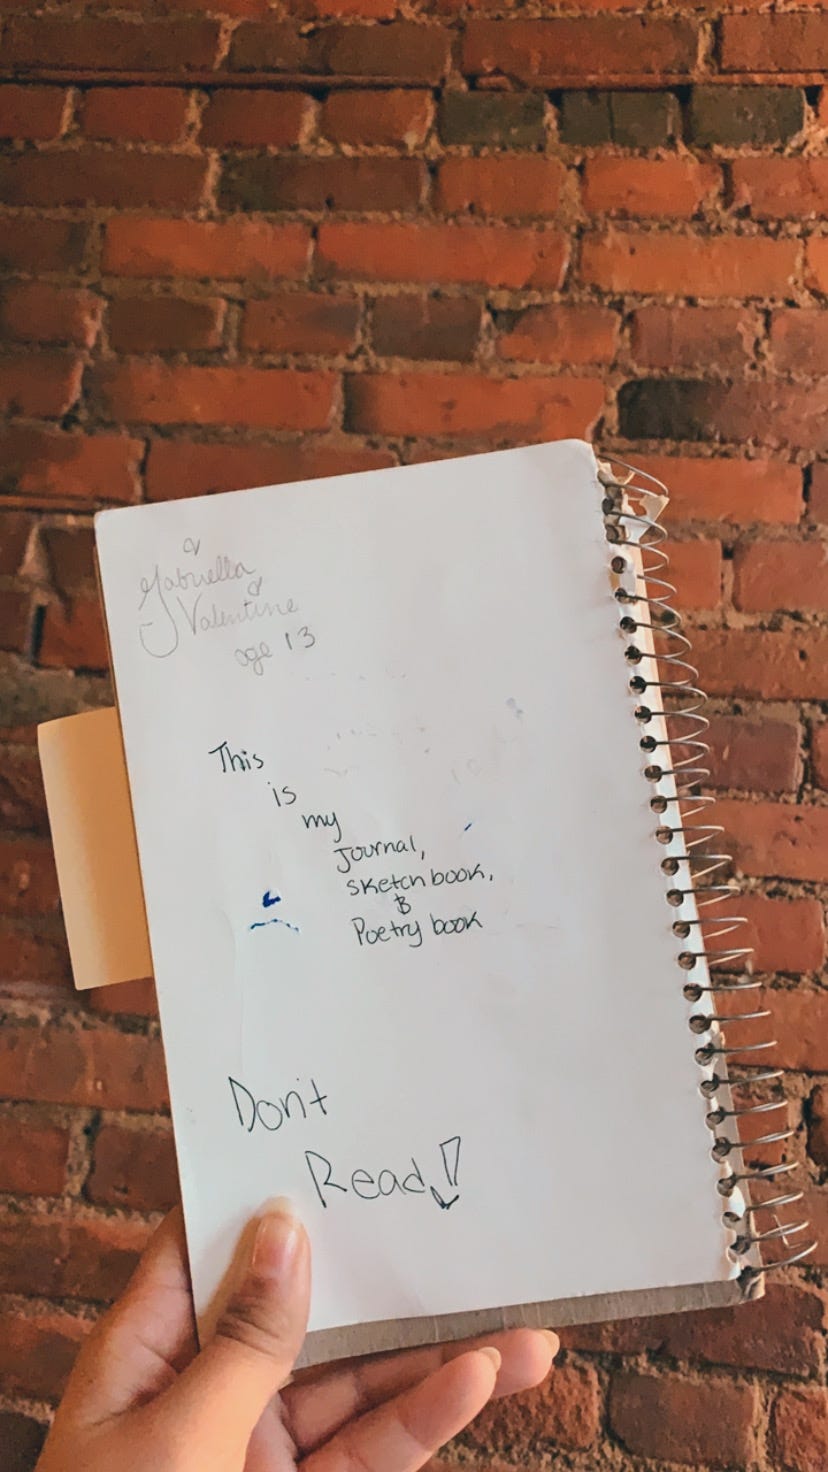 Gabriella
Valentine
age 13
This
is
my
Journal,
Sketch book,
&
Poetry book
Don't
Read!